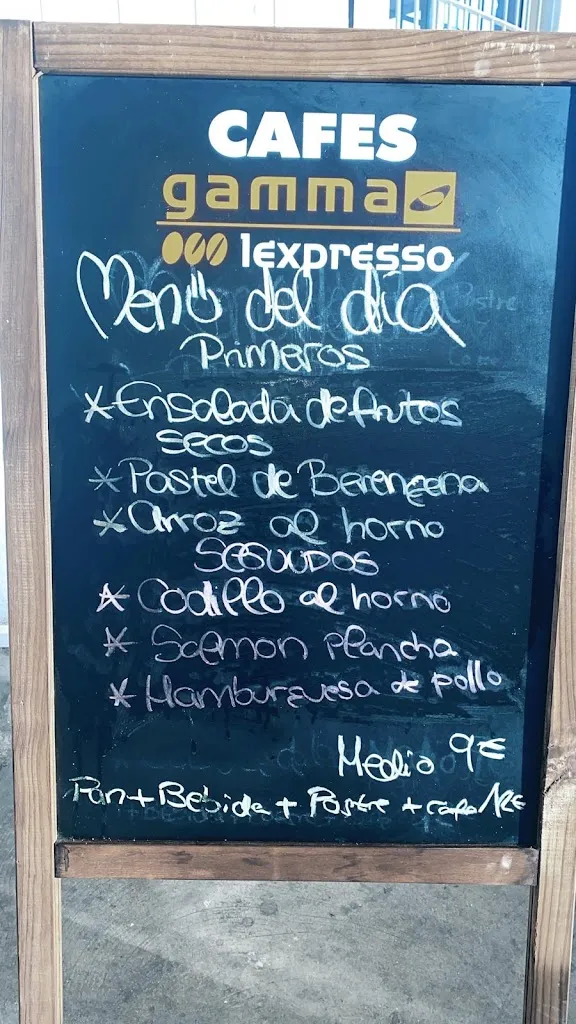 CAFES
gamma
1expresso
Menú del día
Primeros
* Ensalada de frutos
secos
* Pastel de Berengena
* Arroz al horno
Segundos
* Codillo al horno
* Salmon plancha
* Hamburguesa de pollo
Medio 9€
Pan + Bebida + Postre + cafe 12€